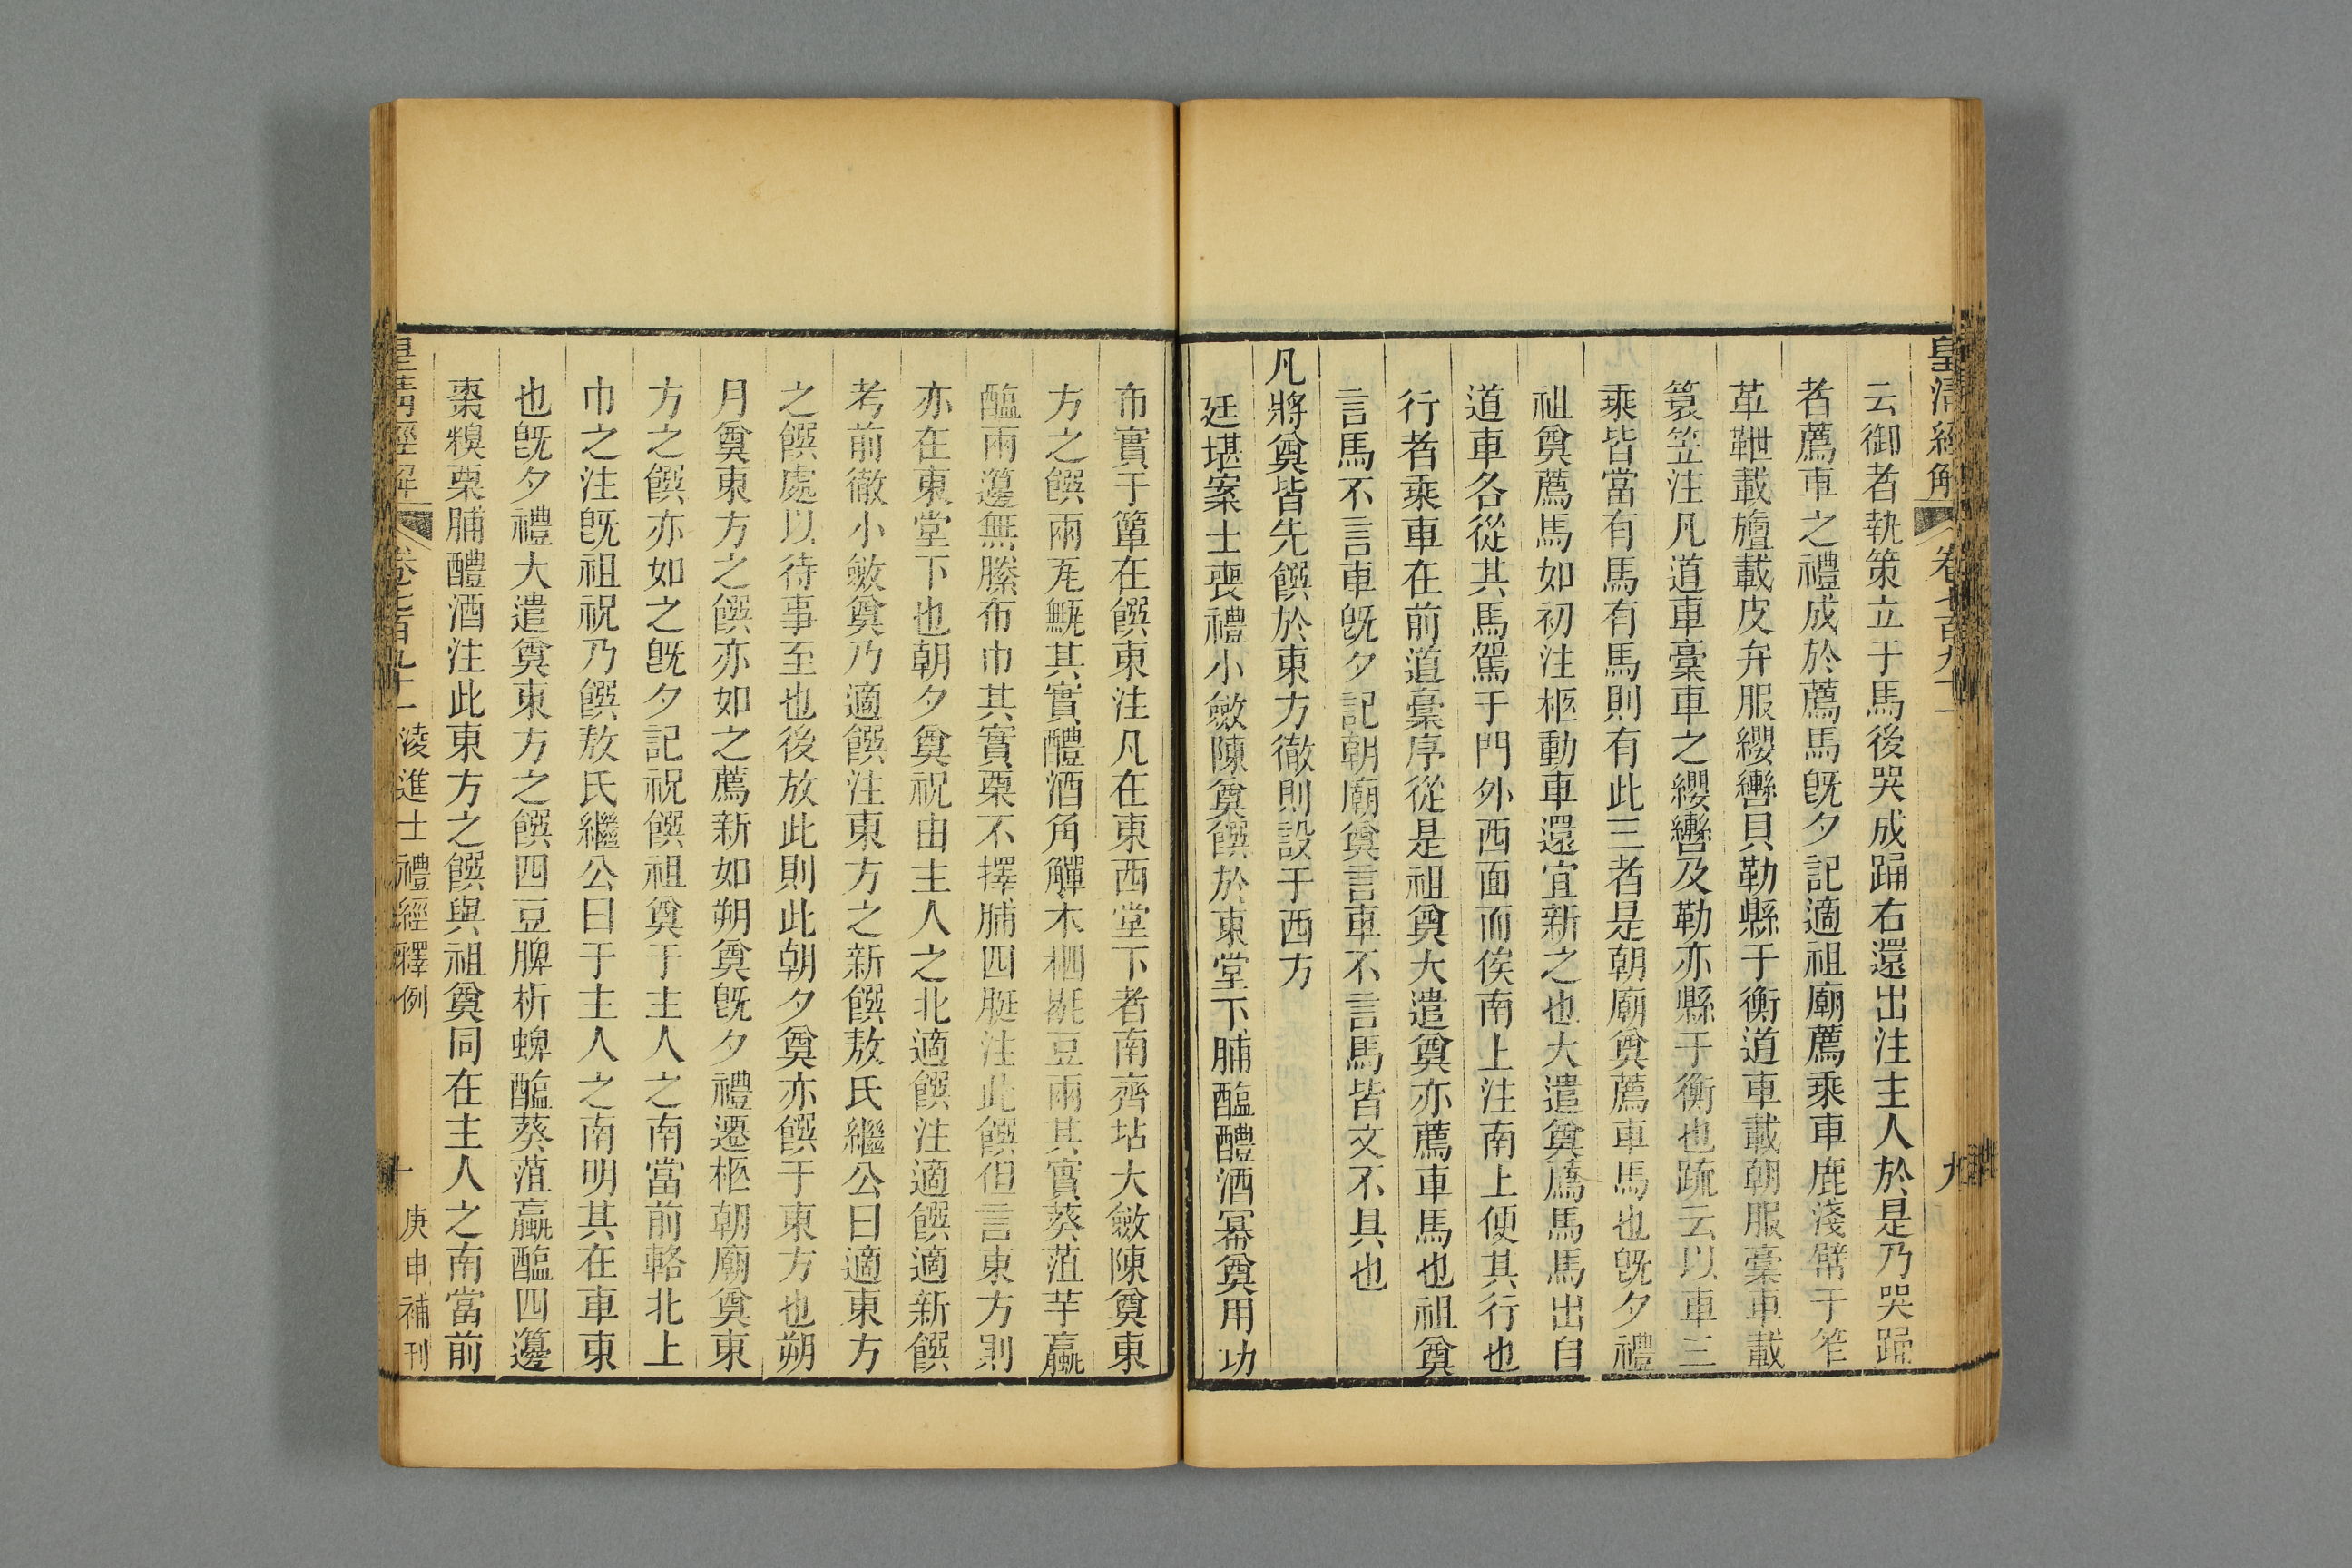 皇清經解 卷七百九十一 九
云御者執策立于馬後哭成踊右還出注主人於是乃哭踊
者薦車之禮成於薦馬旣夕記適祖廟薦乘車鹿淺幦干笮
革靾載旜載皮弁服纓轡貝勒縣于衡道車載朝服槀車載
簑笠注凡道車槀車之纓轡及勒亦縣于衡也疏云以車三
乘皆當有馬有馬則有此三者是朝廟奠薦車馬也旣夕禮
祖奠薦馬如初注柩動車還宜新之也大遣奠薦馬馬出自
道車各從其馬駕于門外西面而俟南上注南上便其行也
行者乘車在前道槀序從是祖奠大遣奠亦薦車馬也祖奠
言馬不言車旣夕記朝廟奠言車不言馬皆文不具也
凡將奠皆先饌於東方徹則設于西方
廷堪案士喪禮小斂陳奠饌於東堂下脯醢醴酒冪奠用功
布實于簞在饌東注凡在東西堂下者南齊坫大斂陳奠東
方之饌兩瓦甒其實醴酒角觶木柶毼豆兩其實葵菹芋蠃
醢兩籩無縢布巾其實栗不擇脯四脡注此饌但言東方則
亦在東堂下也朝夕奠祝由主人之北適饌注適饌適新饌
考前徹小斂奠乃適饌注東方之新饌敖氏繼公曰適東方
之饌處以待事至也後放此則此朝夕奠亦饌于東方也朔
月奠東方之饌亦如之薦新如朔奠旣夕禮遷柩朝廟奠東
方之饌亦如之旣夕記祝饌祖奠于主人之南當前輅北上
巾之注旣祖祝乃饌敖氏繼公曰于主人之南明其在車東
也旣夕禮大遣奠東方之饌四豆脾析蜱醢葵菹蠃醢四籩
棗糗栗脯醴酒注此東方之饌與祖奠同在主人之南當前
皇清經解 卷七百九十一 淩進士禮經釋例 十 庚申補刊